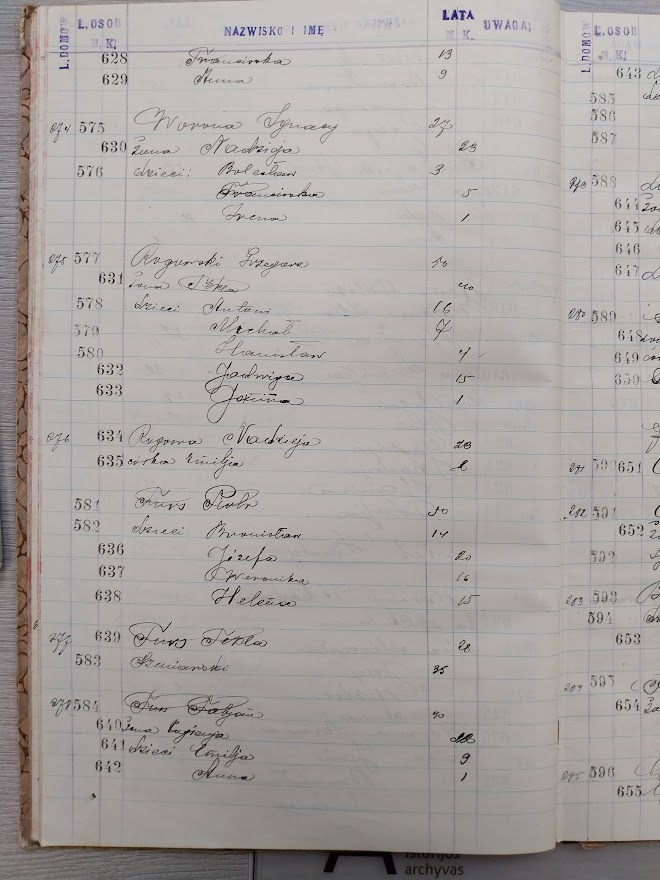 L. DOMÓW L. OSOB NAZWISKO I IMĘ LATA UWAGAI
M. K. M. K.
628 Franciszka 13
629 Anna 9
274 575 Worona Ignacy 27
630 żona Nadzieja 23
576 dzieci: Bolesław 3
Franciszka 5
Irena 1
275 577 Rogowski Grzegorz 50
631 żona Tekla 40
578 dzieci Antoni 16
579 Michał 7
580 Stanisław 4
632 Jadwiga 15
633 Janina 1
276 634 Rogowa Nadzieja 23
635 córka Emilja
581 Furs Piotr 50
582 dzieci Bronisław 14
636 Józefa 20
637 Weronika 16
638 Helena 15
277 639 Furs Tekla 28
583 35
278 584 Furs Fabjan 30
640 żona Eugenja
641 dzieci Emilja 9
642 Anna 1
L. DOMÓW L. OSOB
M. K.
643
585
586
587
279 588
644
645
646
647
280 589
648
649
650
281 590 651
282 591
652
592
283 593
594
653
284 595
654
596
655
istorijos
archyvas